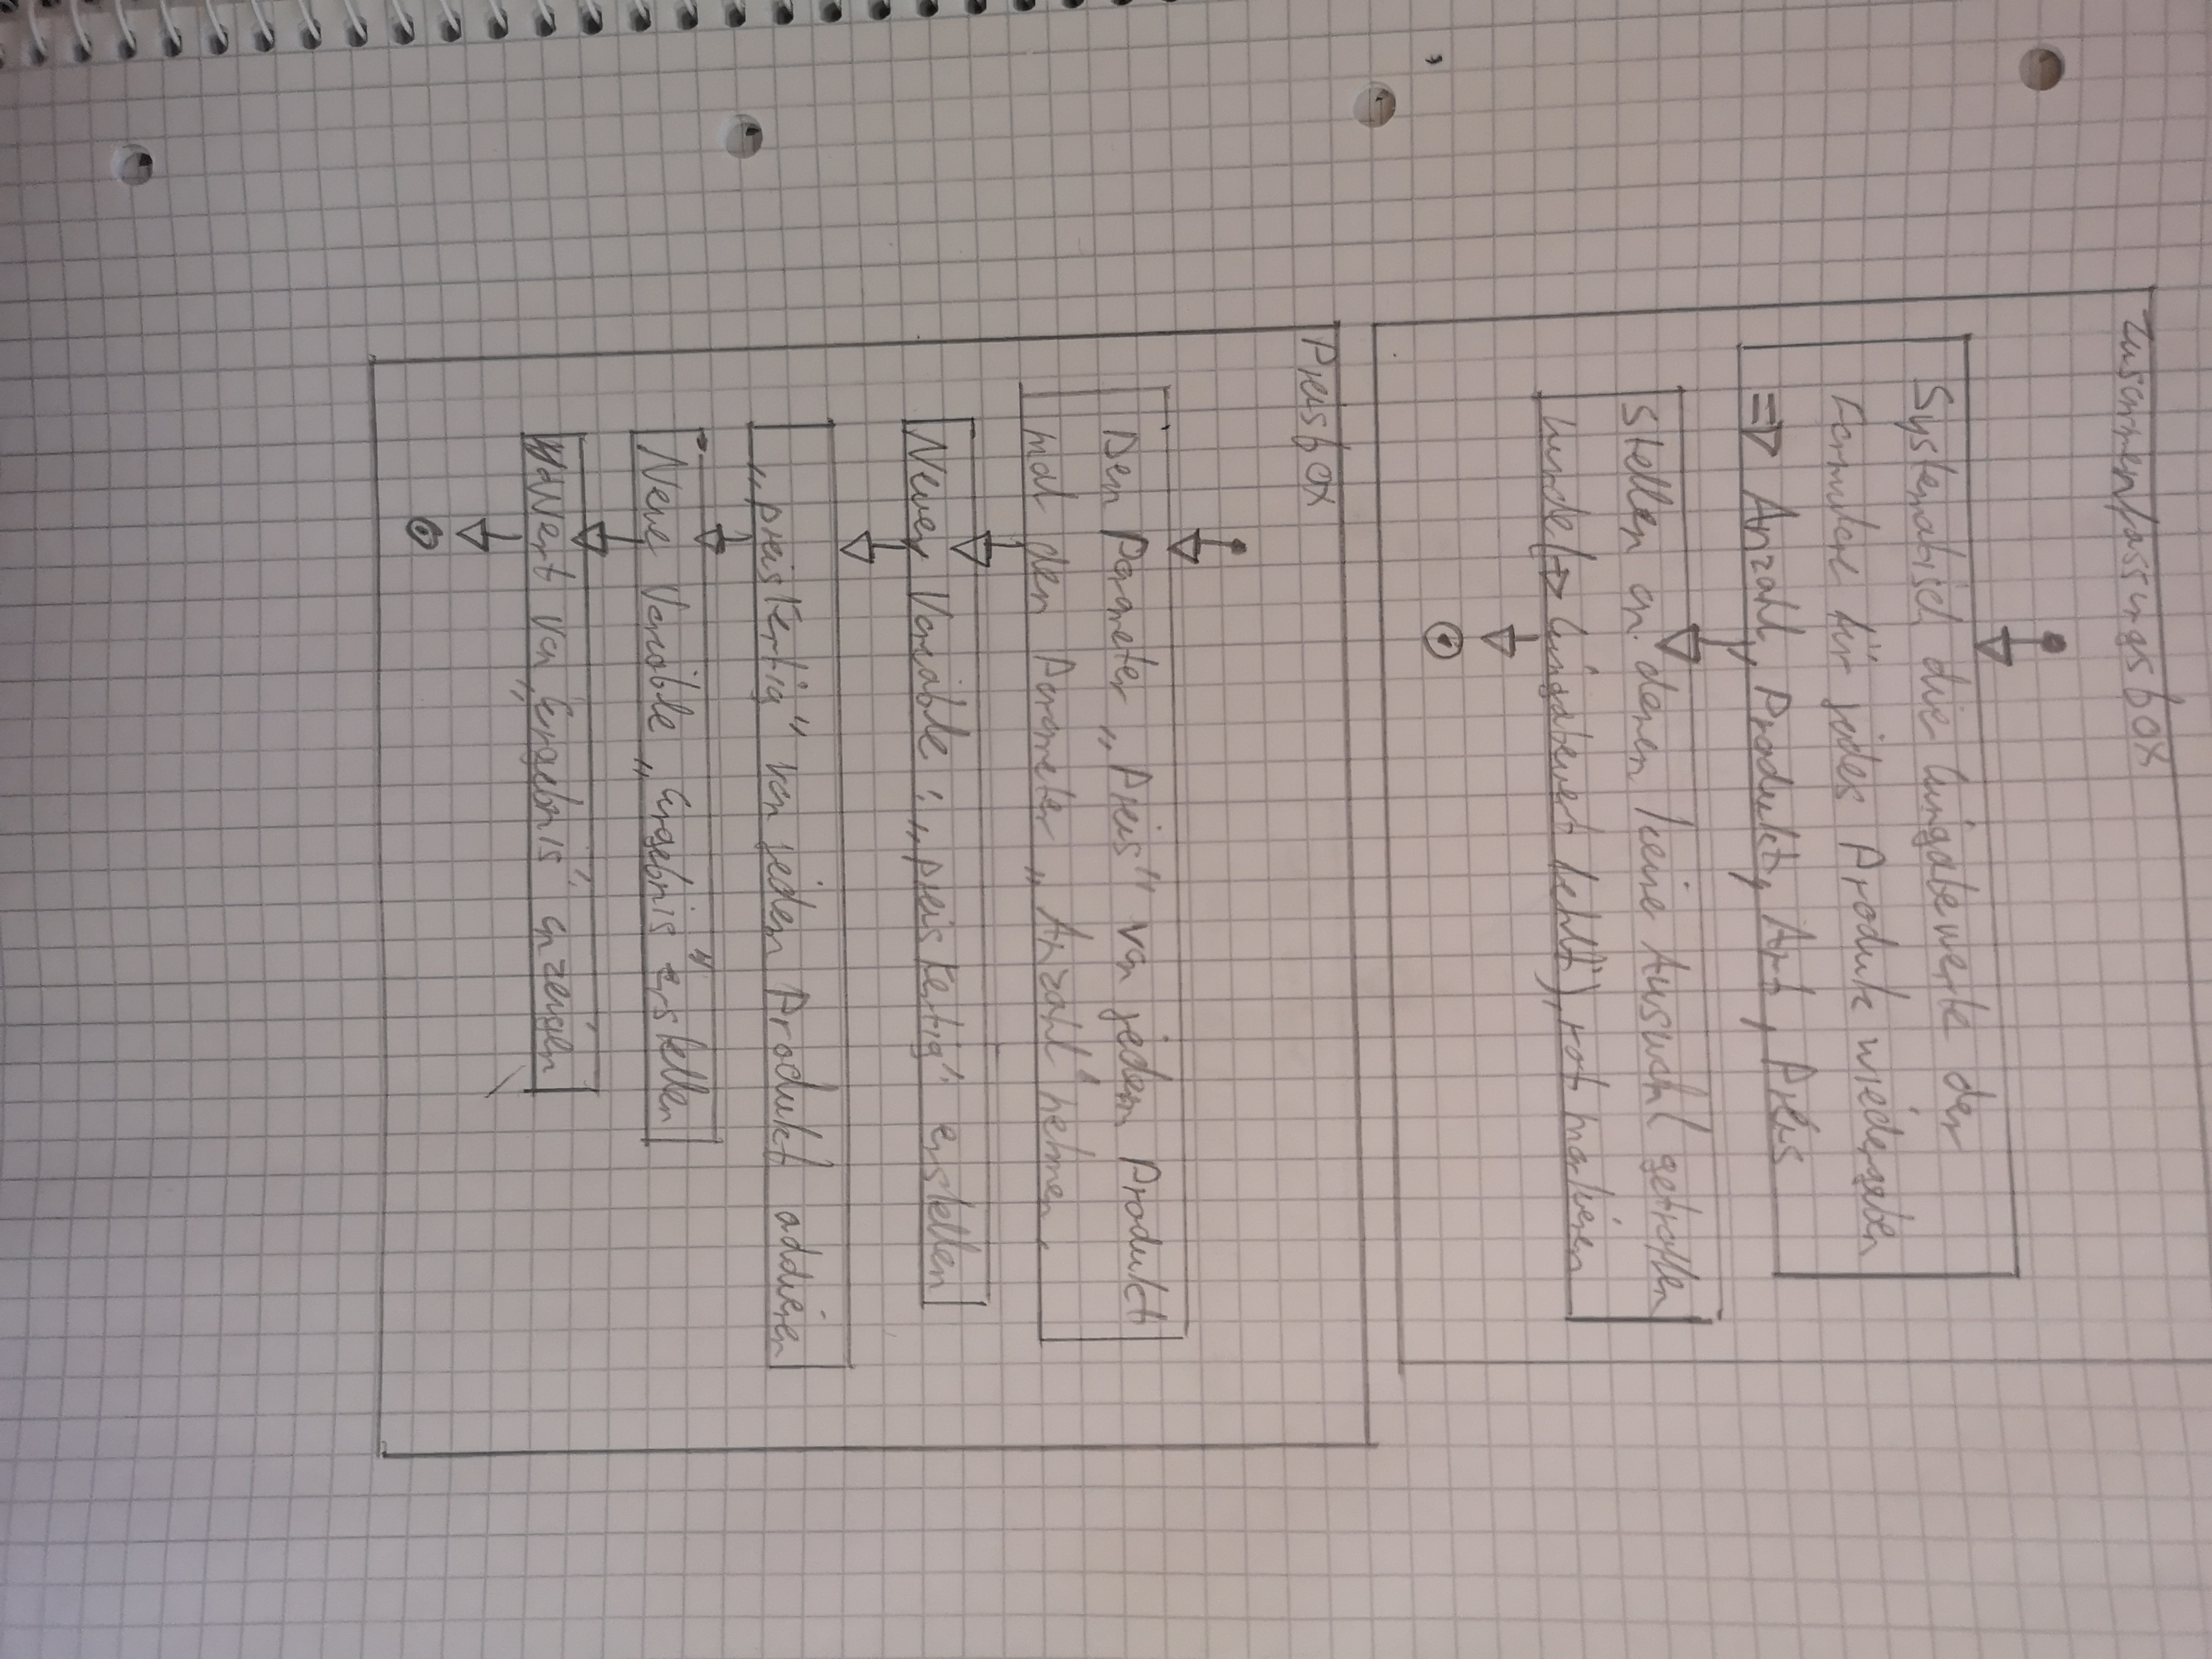 Zusammenfassungsbox
Systematisch die Eingabewerte der
Formulare für jedes Produkt wiedergeben
=> Anzahl, Produkt, Art, Preis
Stellen an denen keine Auswahl getroffen
wurde (=> Eingabewert fehlt), rot markieren
Preisbox
Den Parameter „Preis" von jedem Produkt
mal den Parameter „Anzahl" nehmen
Neue Variable: „preisFertig" erstellen
„preisFertig" von jedem Produkt addieren
Neue Variable „Ergebnis" erstellen
Wert von „Ergebnis" anzeigen